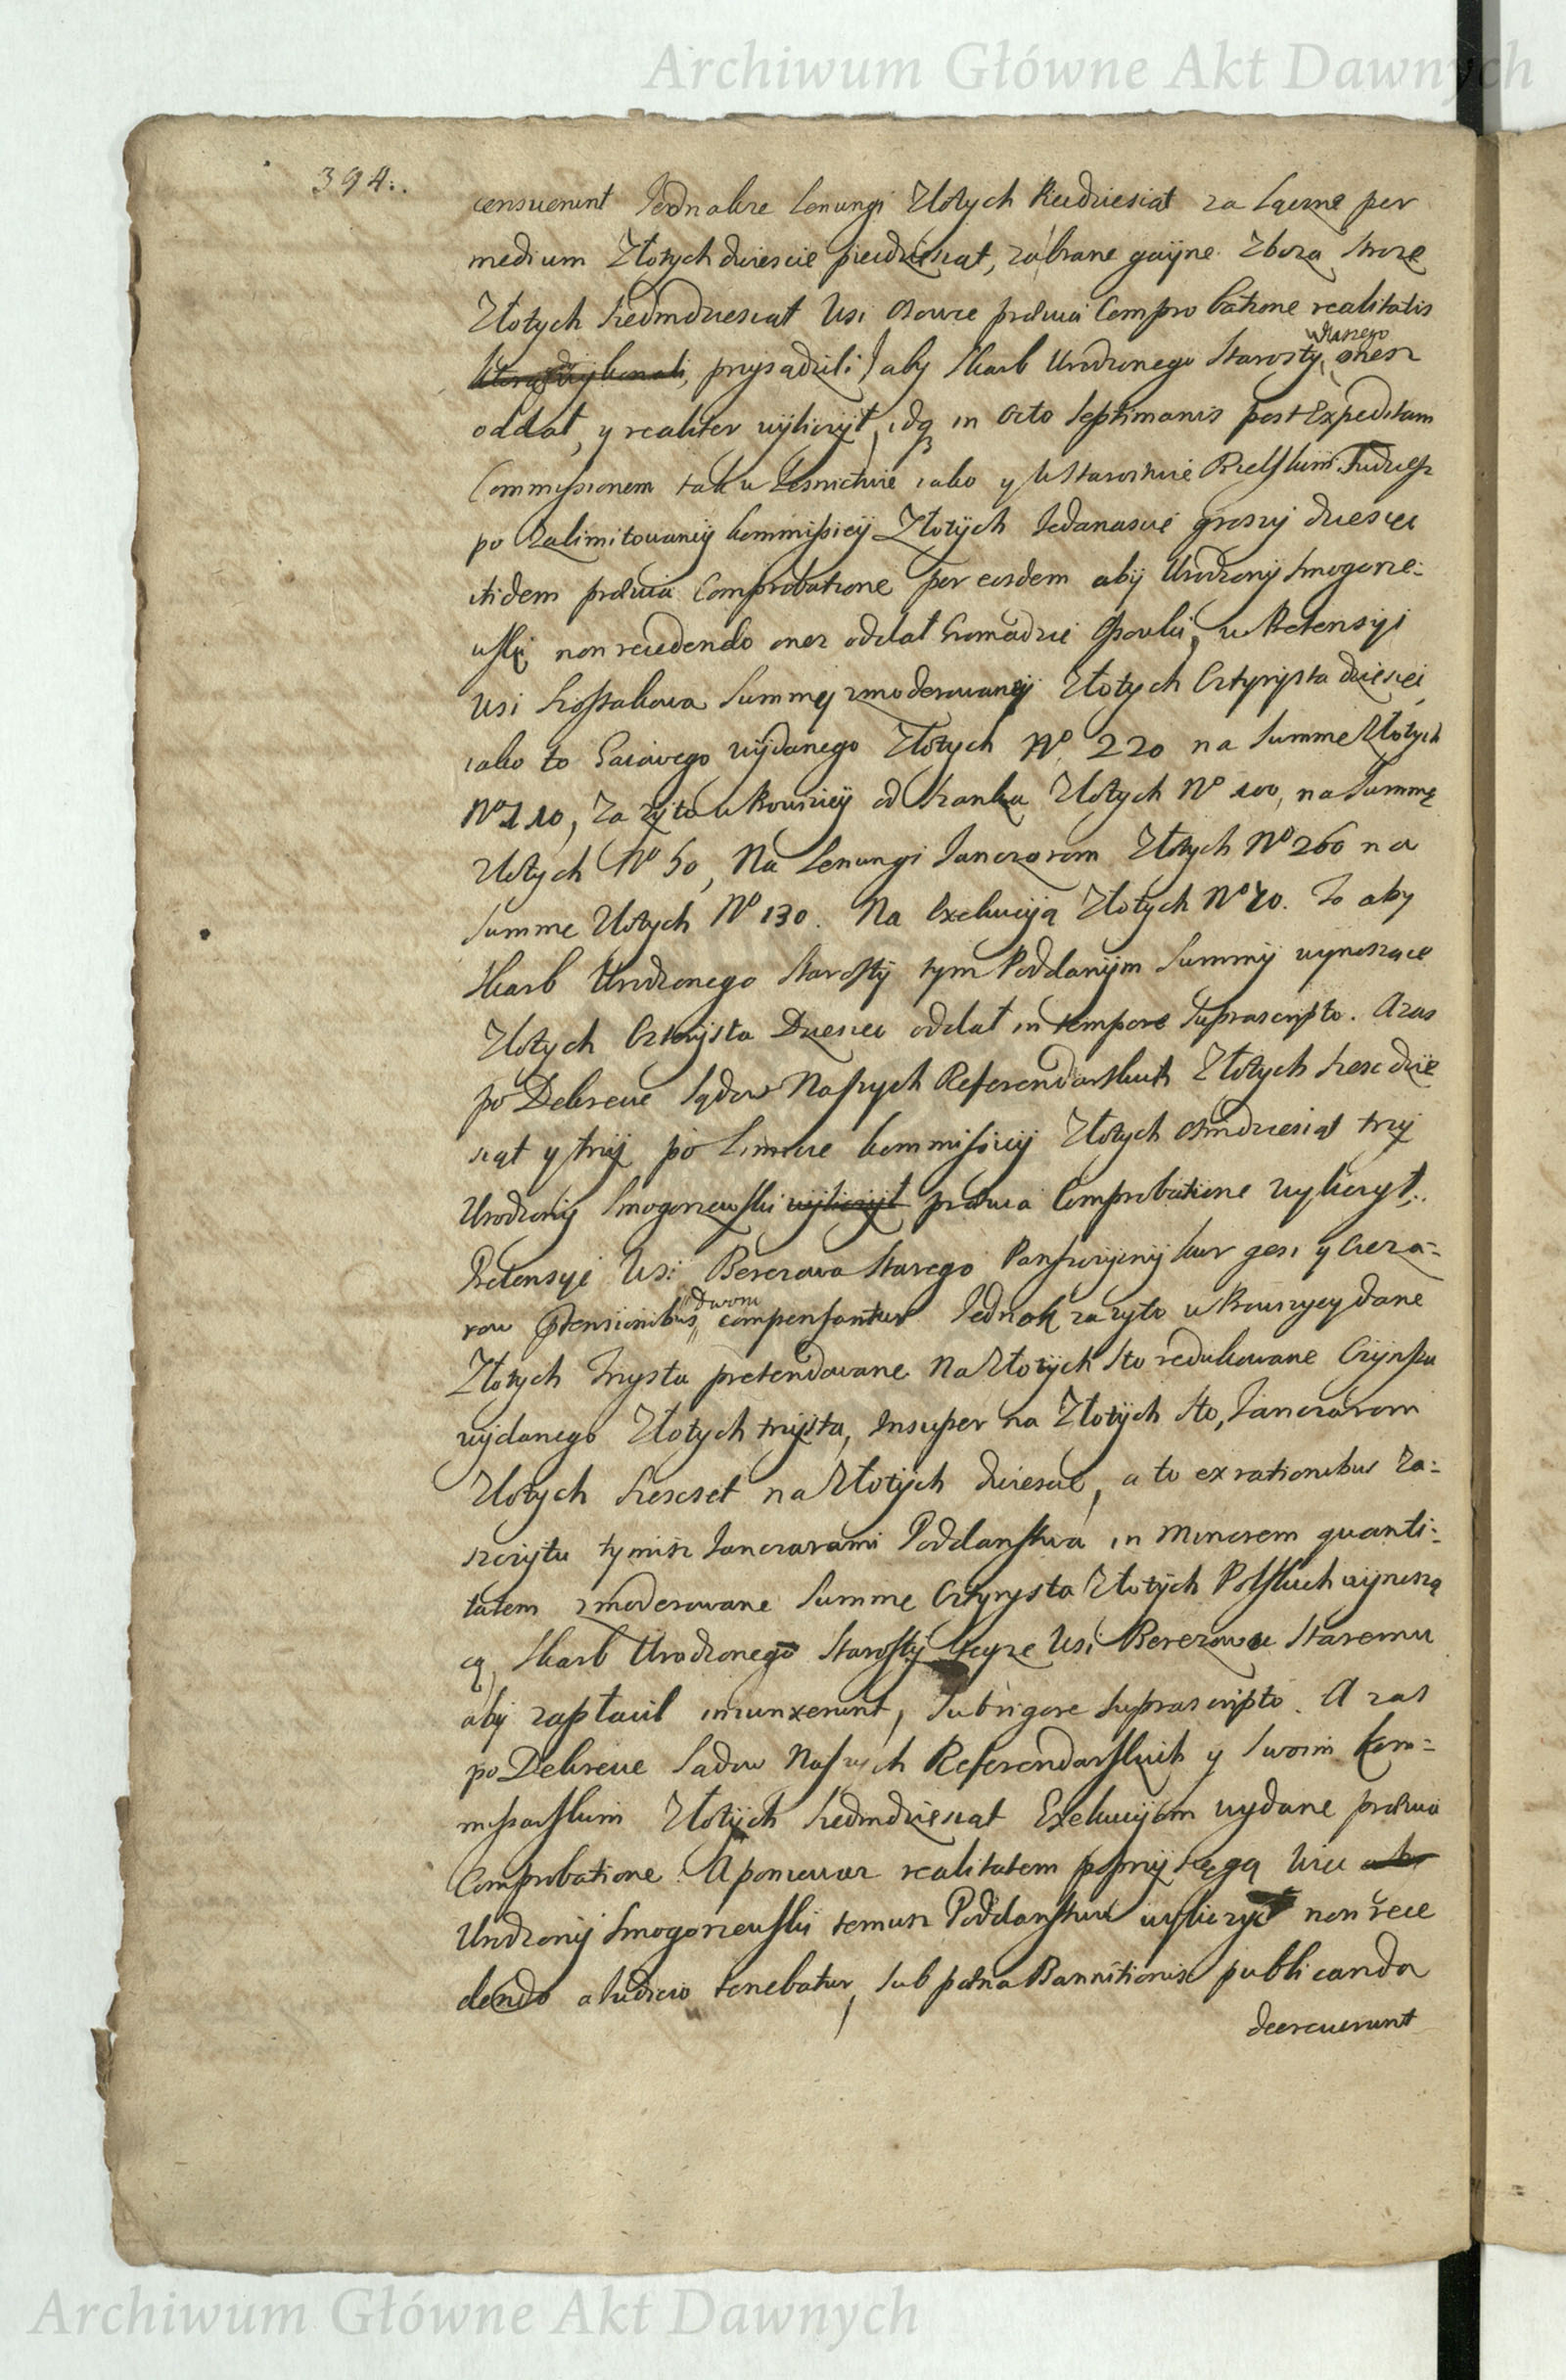 Archiwum Główne Akt Dawnych
394.
censuerunt Jednakze Lenungi Złotych Piędziesiąt za Łączne per
medium Złotych dwiescie piędziesiąt, zabrane gajne Zboza swoze
Złotych siedmdziesiat Wsi Osowce prævia Comprobatione realitatis
przysądzili aby Skarb Urodzonego Starosty własnego onesz
oddał, y realiter wyliczył, idq in Octo septimanis post Expeditam
Commissionem tak w Lesnictwie iako y w Starostwie Bielskim Tudziesz
po Zalimitowaney kommissiey Złotych Jedanascie groszy dziesięć
itidem prævia Comprobatione per eosdem aby Urodzony Smogorze-
wski non recedendo onez oddał Gromadzie Osowki, w Pretensyi
Wsi Szostakowa Summy zmoderowaney Złotych Cztyrysta dziesięć
iako to Gaiowego wydanego Złotych No 220 na Summe Złotych
No 110, Za zyto w Kowszey od Franka Złotych No 100, na Summę
Złotych No 50, Na Lenungi Janczarom Złotych No 260 na
Summe Złotych No 130. Na Exekucyą Złotych No 20. To aby
Skarb Urodzonego Starosty tym Poddanym Summy wynoszące
Złotych Cztyrysta Dziesiec oddał in tempore Suprascripto. A zas
po Dekrecie Sądow Naszych Referendarskich Złotych szescdzie
siąt y trzy po Limicie kommissiey Złotych osmdziesiąt trzy
Urodzony Smogorzewski wyliczył prævia Comprobatione wyliczył.
Pretensye Wsi Berezowa Starego Panszczyzny kur gesi y Cieza-
row Ptensionibus Dworu compensantur Jednak za zyto w Kowszyey dane
Złotych Trzysta pretendowane Na Złotych Sto redukowane Czynszu
wydanego Złotych trzysta, Insuper na Złotych Sto, Janczarom
Złotych szescset na Złotych dwiescie, a to ex rationibus za-
szczytu tymisz Janczarami Poddanstwa in Minorem quanti-
tatem zmoderowane Summe Cztyrysta Złotych Polskich wynoszą
cą, Skarb Urodzonego Starosty teyze Wsi Berezowu Staremu
aby zapłacił iniunxerunt, Sub rigore Suprascripto. A zas
po Dekrecie Sadow Naszych Referendarskich y Swoim kom-
missarskim Złotych siedmdziesiat Exekucyom wydane prævia
Comprobatione. A poniewaz realitatem poprzysięgą Wiec
Urodzony Smogorzewski temusz Poddanstwu wyliczyć non rece
dendo a Iudicio tenebatur, Sub pœna Bannitionis publicanda
decreverunt
Archiwum Główne Akt Dawnych